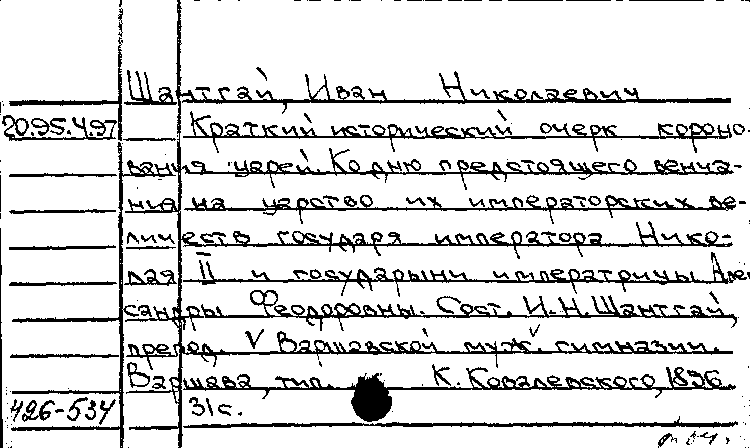 Шантгай, Иван Николаевич
20.95.4.97 Краткий исторический очерк короно-
вания царей. Ко дню предстоящего венча-
ния на царство их императорских ве-
личеств государя императора Нико-
лая II и государыни императрицы Алек
сандры Феодоровны. Сост. И.Н. Шантгай,
препод. V Варшавской муж. гимназии.
Варшава, тип. К. Ковалевского, 1896.
426-534 31 с.